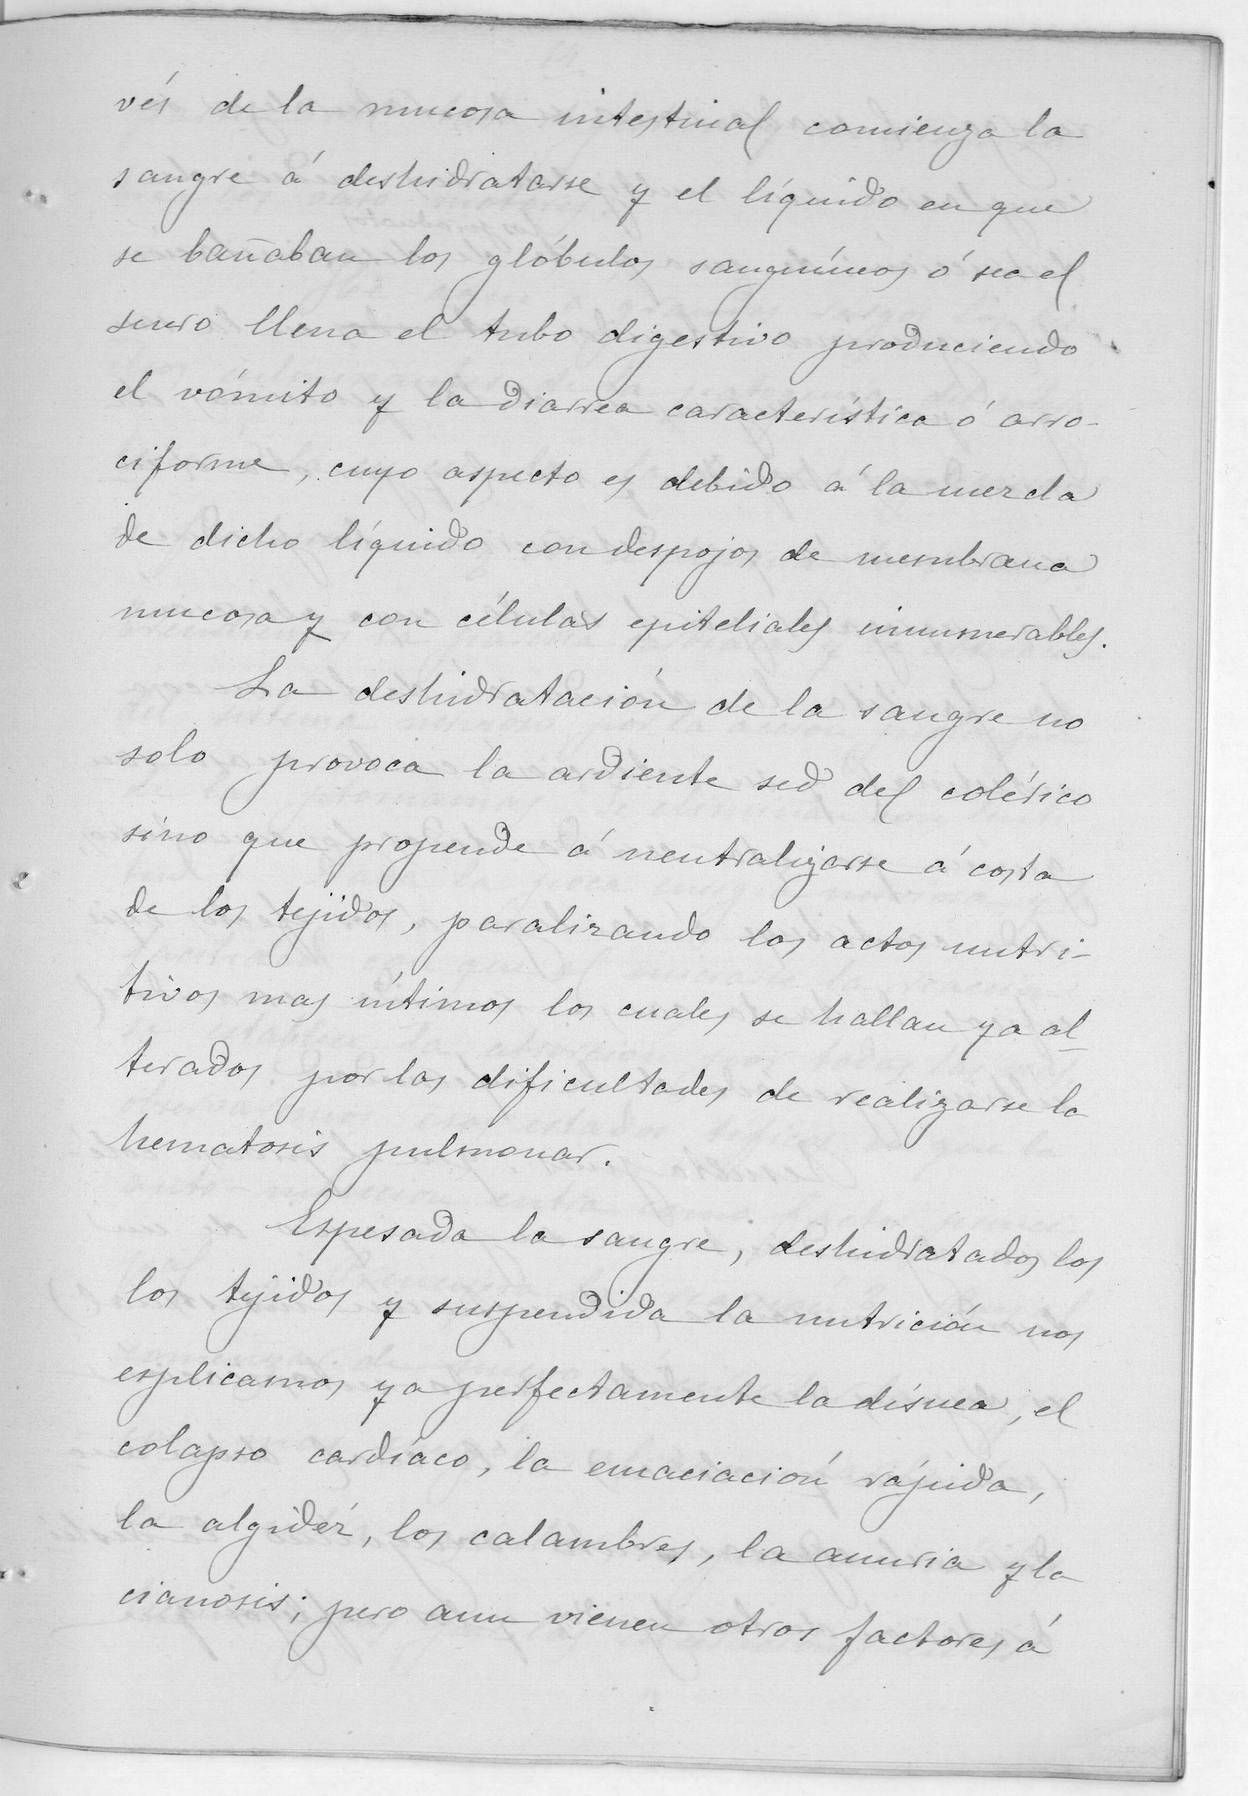 vés de la mucosa intestinal comienza la
sangre á deshidratarse y el líquido en que
se bañaban los glóbulos sanguíneos ó sea el
suero llena el tubo digestivo produciendo
el vómito y la diarrea característica ó arro-
ciforme, cuyo aspecto es debido á la mezcla
de dicho líquido con despojos de membrana
mucosa y con células epiteliales innumerables.
La deshidratación de la sangre no
solo provoca la ardiente sed del colérico
sino que propende á neutralizarse á costa
de los tejidos, paralizando los actos nutri-
tivos mas íntimos los cuales se hallan ya al-
terados por las dificultades de realizarse la
hematosis pulmonar.
Espesada la sangre, deshidratados los
los tejidos y suspendida la nutrición nos
esplicamos ya perfectamente la disnea, el
colapso cardíaco, la emaciación rápida,
la algidéz, los calambres, la anuria y la
cianosis; pero aun vienen otros factores á